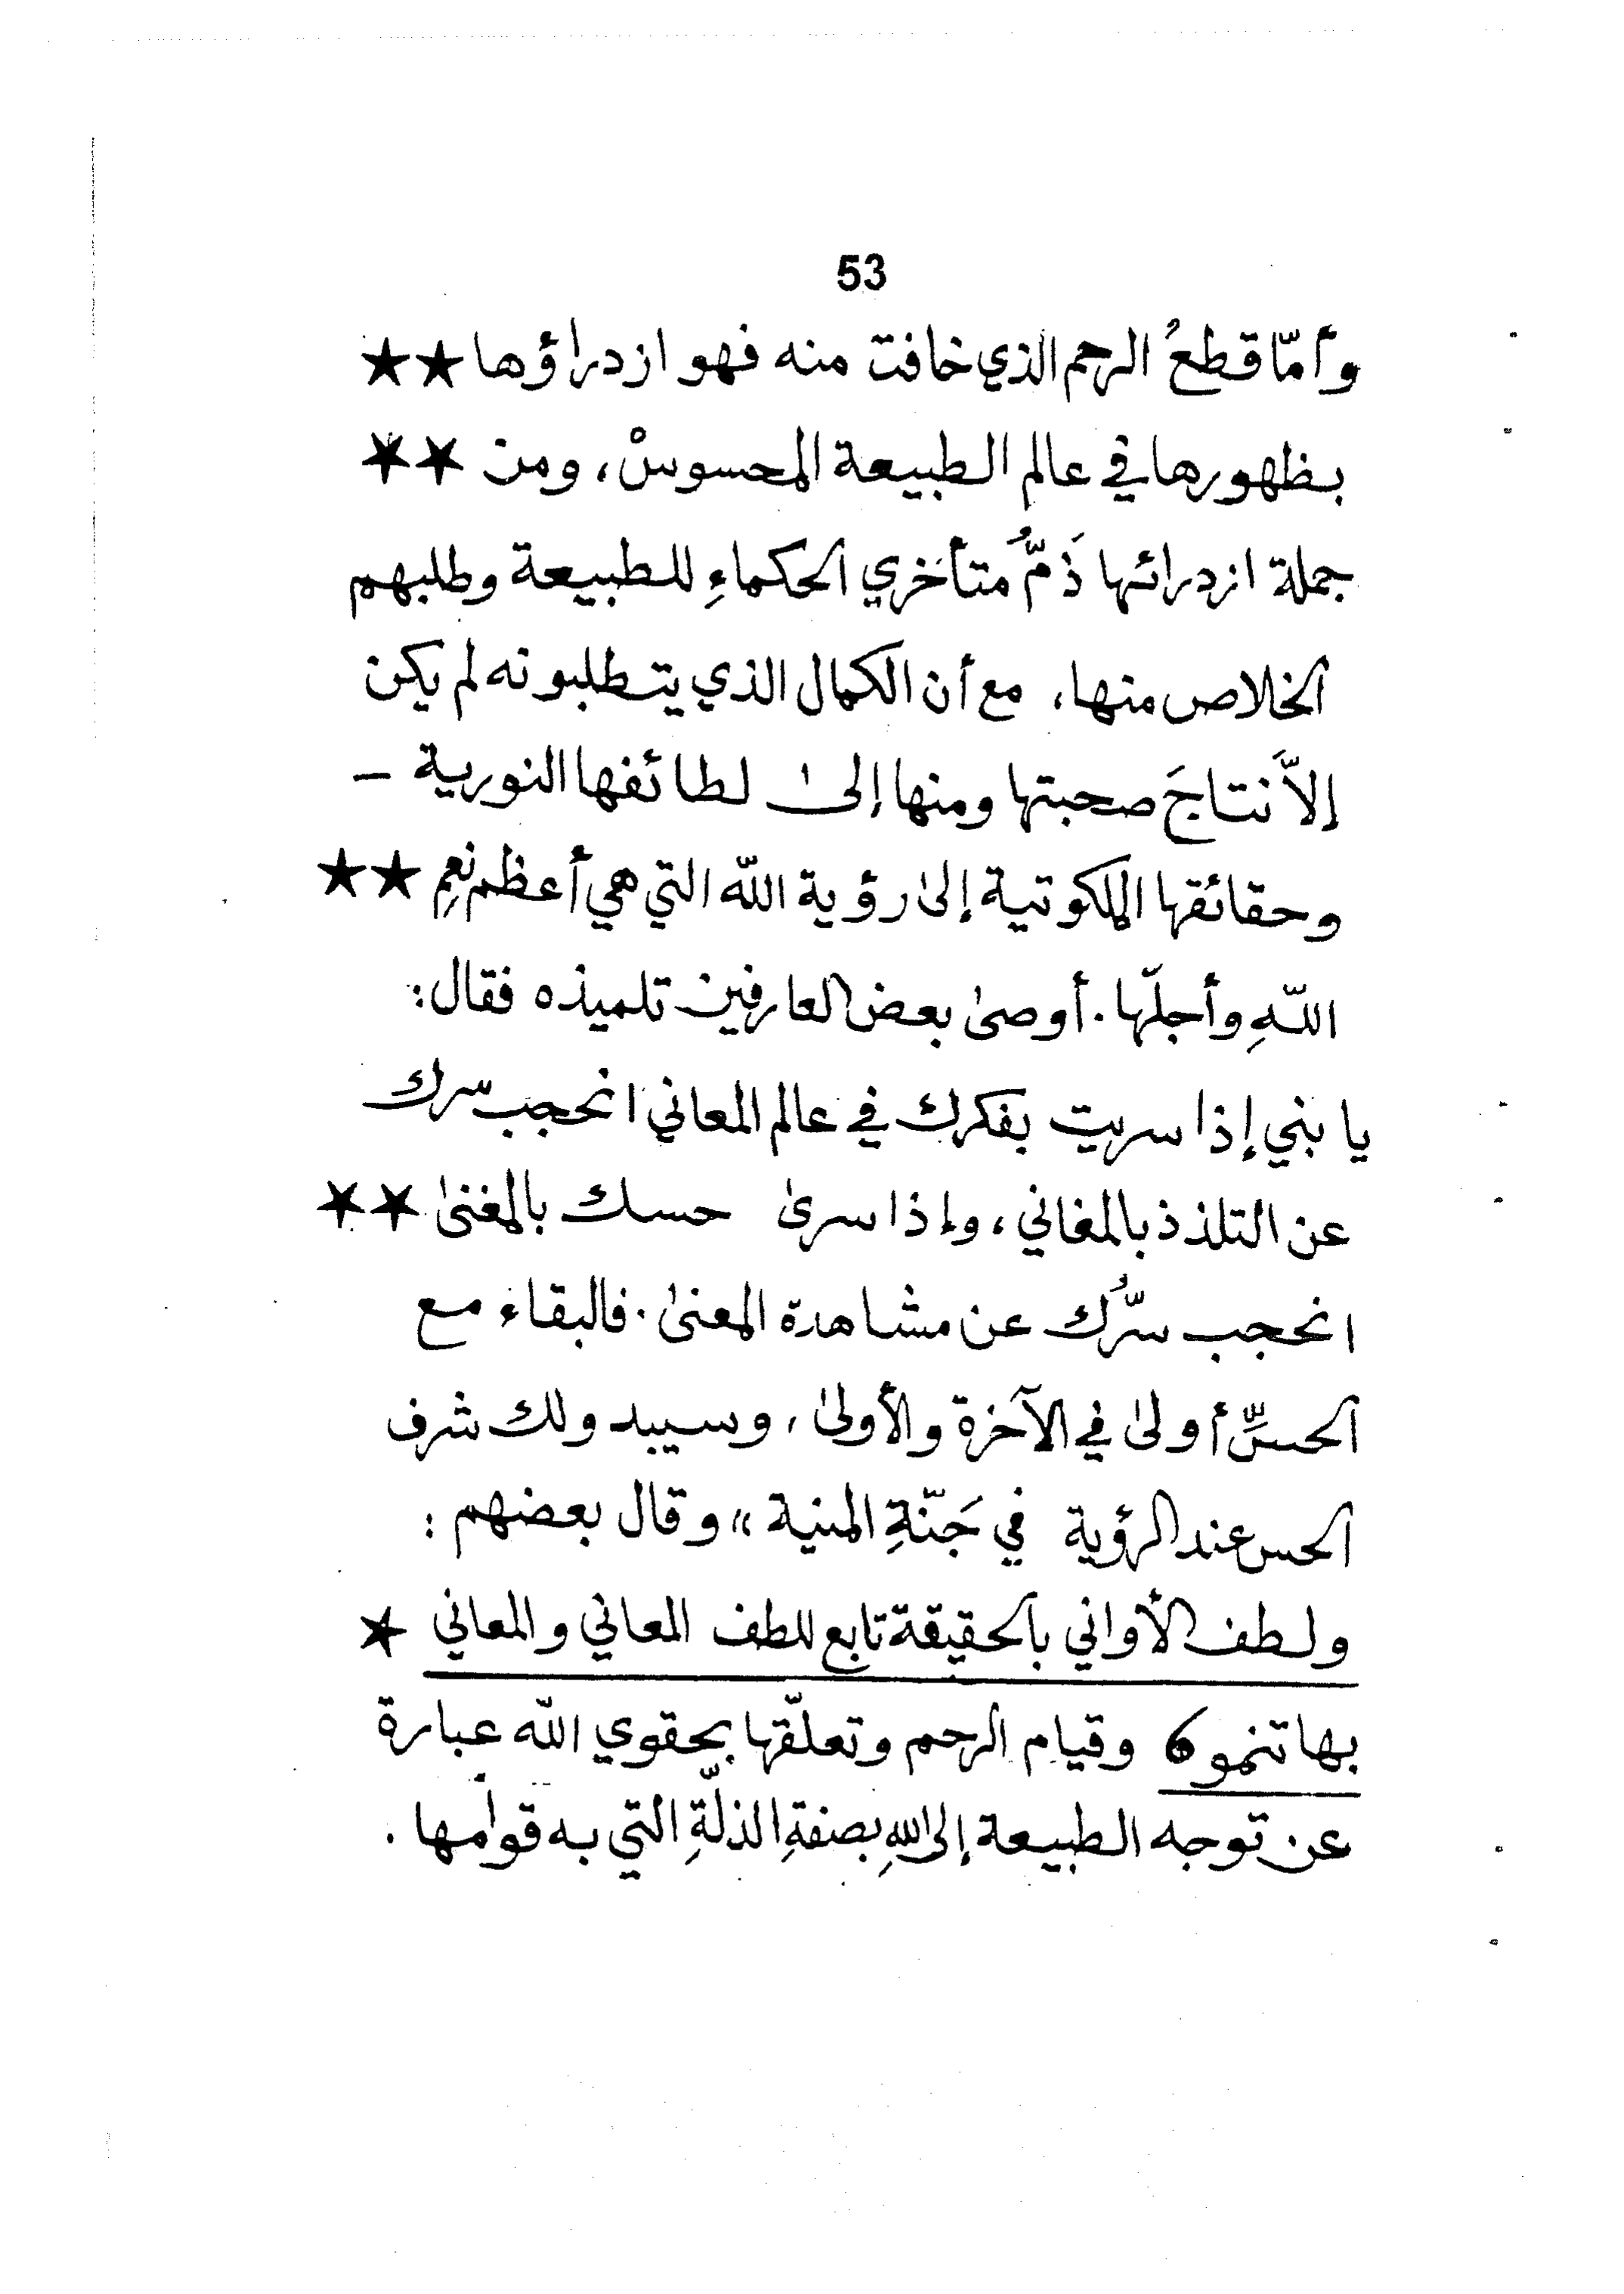 53
وأمّا قطعُ الرحم الذي خافت منه فهو ازدراؤها ★★
بظهورها في عالم الطبيعة المحسوسْ، ومن ★★
جملة ازدرائها ذَمُّ متأخري الحكماءِ للطبيعة وطلبهم
الخلاص منها، مع أن الكمال الذي يتطلبونه لم يكن
إلاَّ نتاجَ صحبتها ومنها إلىٰ لطائفها النورية –
وحقائقها الملكوتية إلىٰ رؤية اللّه التي هي أعظم نعمِ ★★
اللّهِ وأجلّها. أوصىٰ بعض العارفين تلميذه فقال:
يا بني إذا سريت بفكرك في عالم المعاني انحجب سرك
عن التلذذ بالمغاني، وإذا سرىٰ حسك بالمغنىٰ ★★
انحجب سرُّك عن مشاهدة المعنىٰ. فالبقاء مع
الحسِّ أولىٰ في الآخرة والأولىٰ، وسيبد ولك شرف
الحس عند الرؤية في جَنّةِ المنية» وقال بعضهم:
ولطف الأواني بالحقيقة تابع للطف المعاني والمعاني ★
بها تنمو 6 وقيام الرحم وتعلّقها بحقوي اللّه عبارة
عن توجه الطبيعة إلى اللهِ بصفةِ الذلّةِ التي به قوامها.